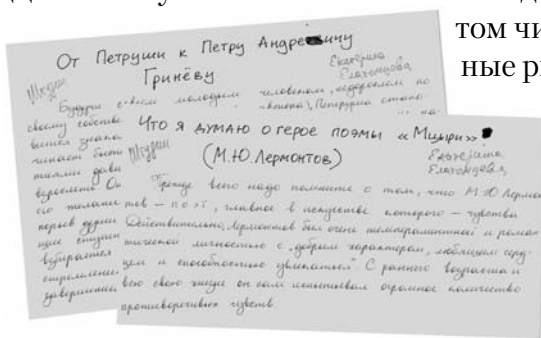 том чи
ные ри
От Петруши к Петру Андреевичу
Гринёву
Екатерина
Елагонцева
Штудии
Будучи совсем молодым человеком, недорослем по
своему
вается
чинает быть
взрослеть. Он
его
первых
щие
взбирается
завершились
Что я думаю о герое поэмы «Мцыри»
(М.Ю.Лермонтов)
Штудии
Екатерина
Елагонцева
Прежде всего надо помнить о том, что М.Ю Лермон
тов – поэт, главное в искусстве которого – чувства
Действительно, Лермонтов был очень темпераментной и роман
тической личностью с „добрым характером, любящим серд-
цем и способностью увлекаться“ С раннего возраста и
всю свою жизнь он сам испытывал огромное количество
противоречивых чувств.